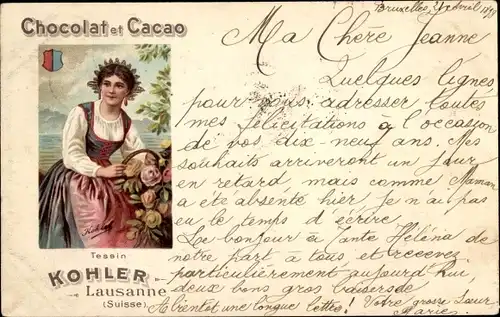 Chocolat et Cacao
Tessin
KOHLER
Lausanne
(Suisse)
Bruxelles, Avril
Ma Chère Jeanne
Quelques lignes
pour vous adresser toutes
mes félicitations à l'occasion
de vos dix-neuf ans. Mes
souhaits arriveront un jour
en retard, mais comme Maman
a été absente hier je n'ai pas
eu le temps d'écrire
bonjour à Tante Héléna de
notre part à tous et recevez
particulièrement aujourd'hui
deux bons gros baisers de
A bientôt une longue lettre! Votre grosse Sœur
Marie